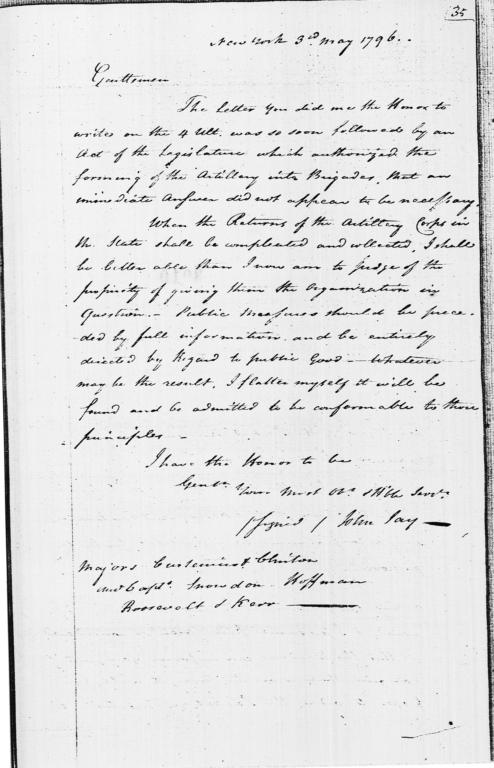 35
New York 3rd May 1796.
Gentlemen
The Letter you did me the Honor to
write on the 4 Ult. was so soon followed by an
Act of the Legislature which authorized the
forming of the Artillery into Brigades, that an
immediate Answer did not appear to be necessary.
When the Returns of the Artillery Corps in
the State shall be compleated and collected, I shall
be better able than I now am to Judge of the
propriety of giving them the Organization in
Question. – Public Measures should be prece-
ded by full information, and be entirely
directed by Regard to public Good – Whatever
may be the result, I flatter myself it will be
found and be admitted to be conformable to those
principles –
I have the Honor to be
Gentn. Your most Ob. & Hble Servt.
(signed) John Jay –
Majors & Clinton
and Capts. Snowdon Hoffman
Roosevelt & Kerr –